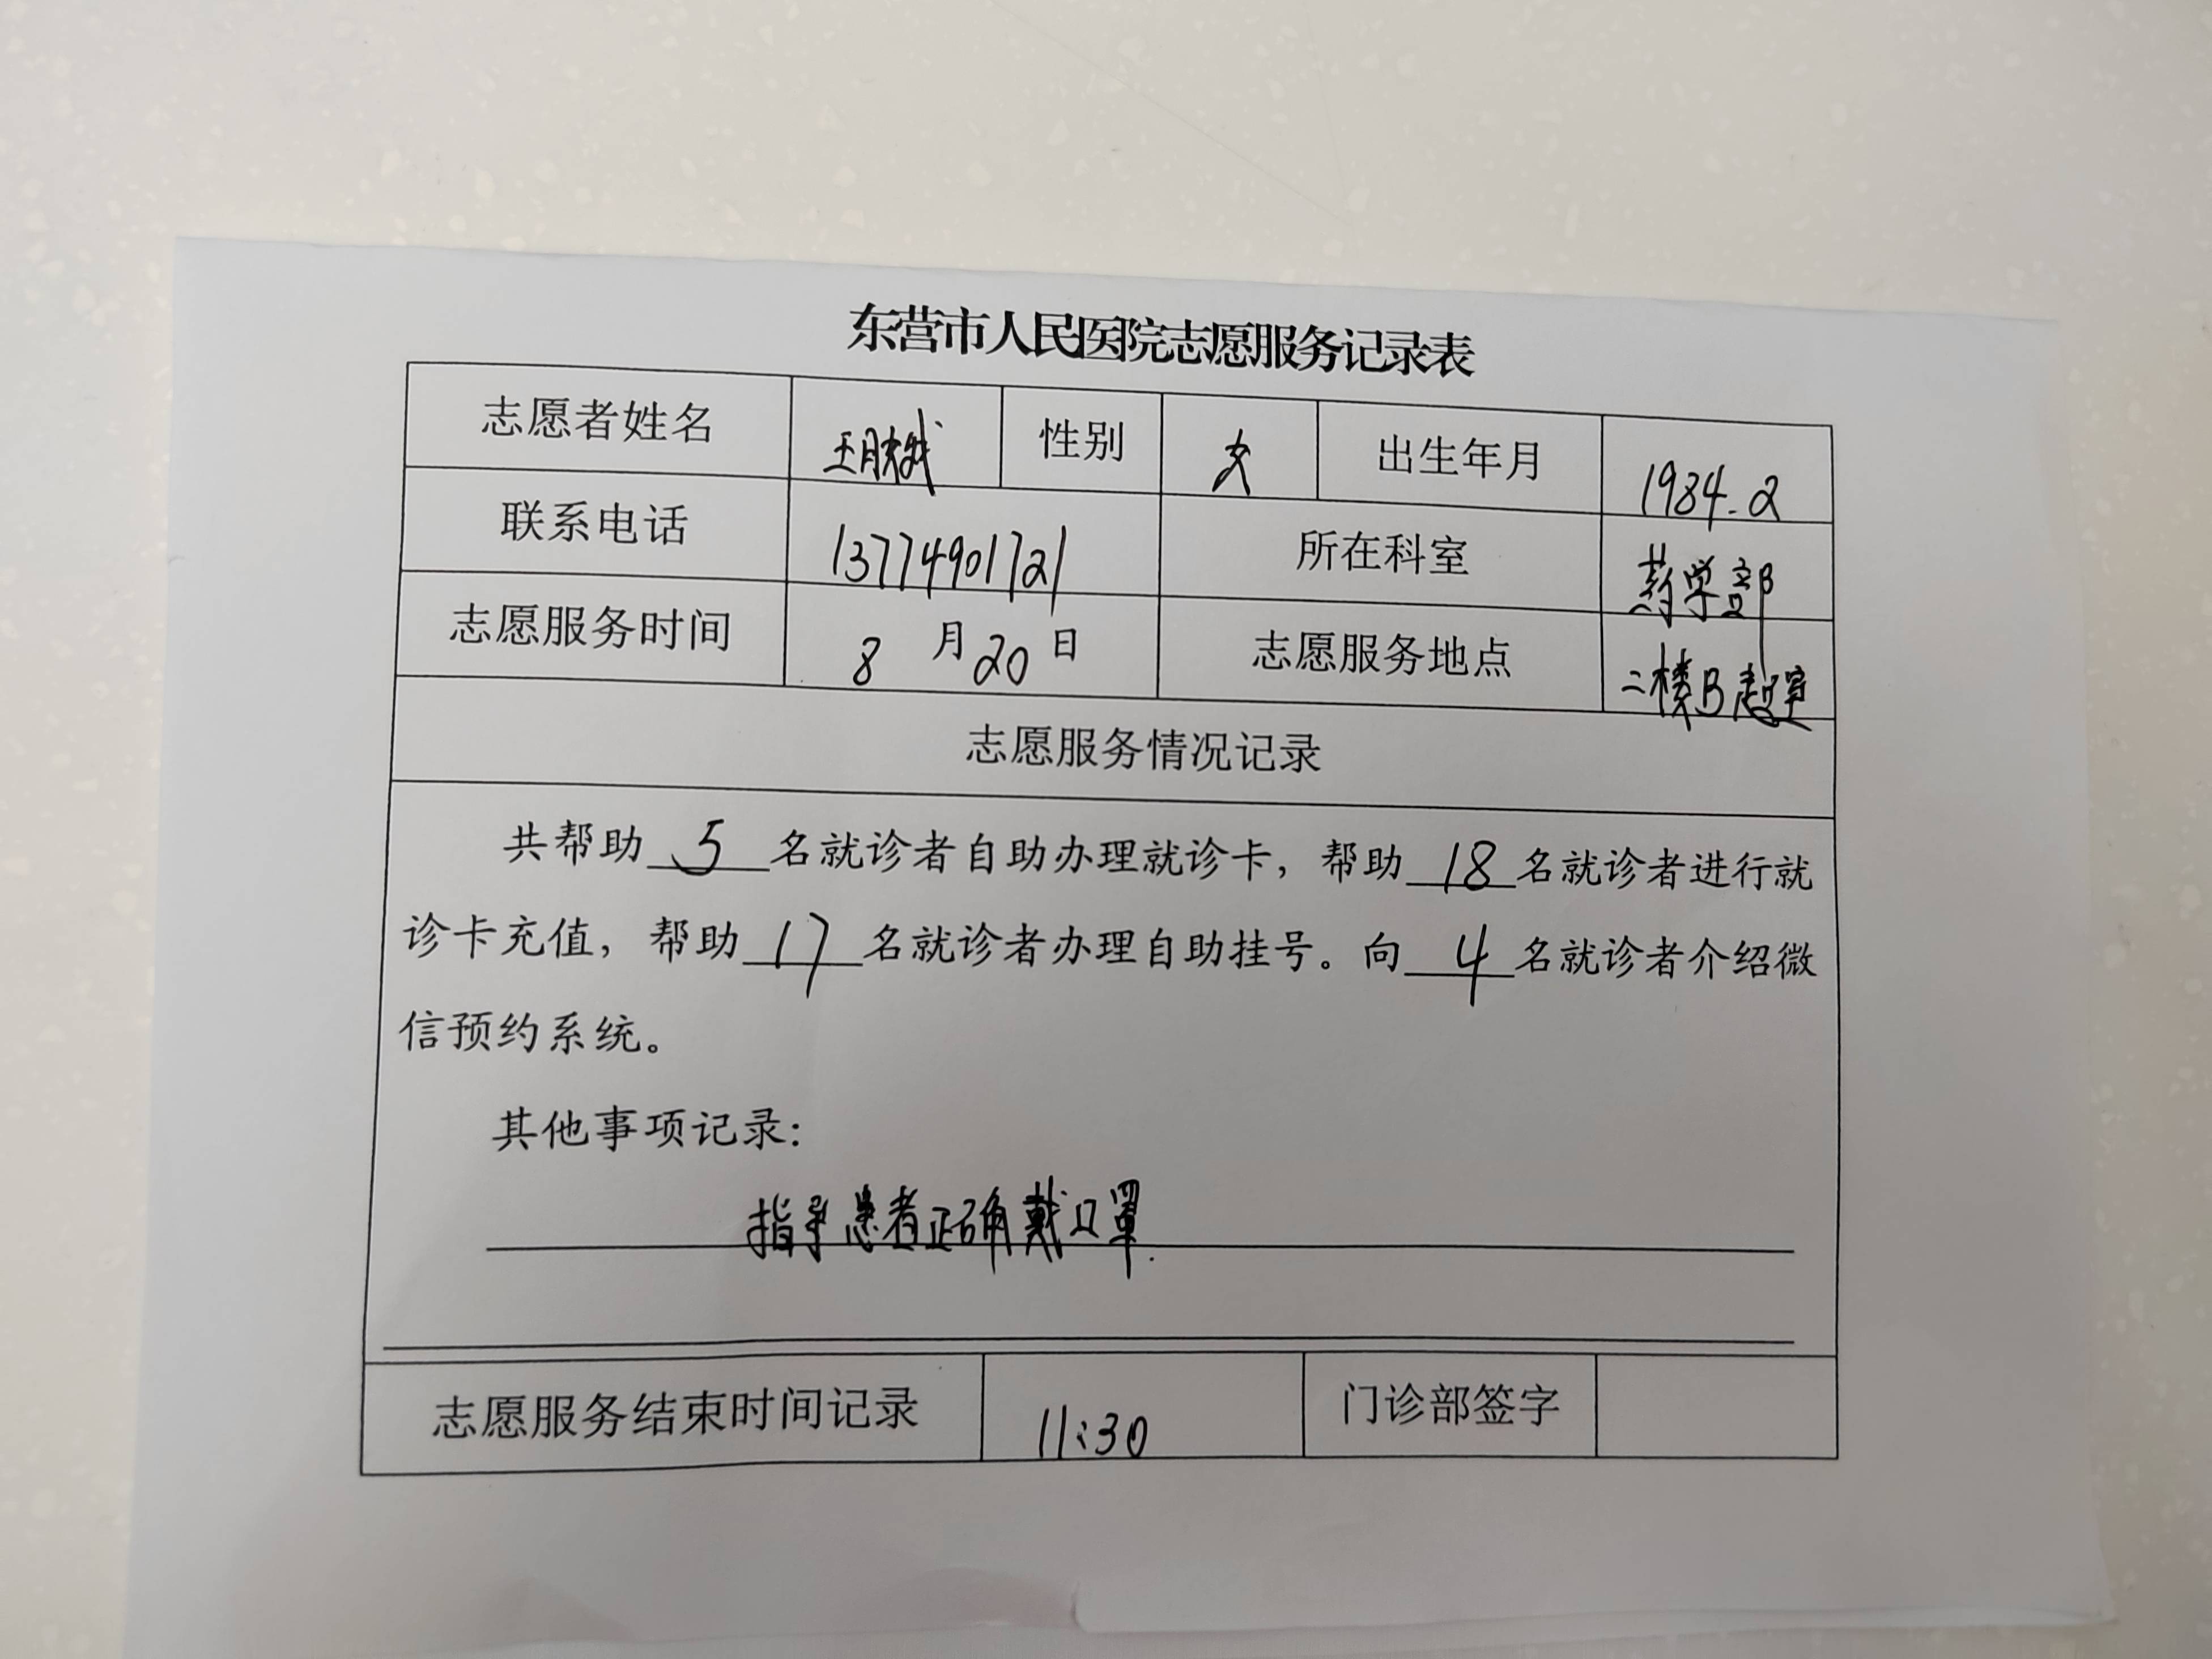 东营市人民医院志愿服务记录表
志愿者姓名 王 性别 女 出生年月 1984.2
联系电话 13774901721 所在科室 药学部
志愿服务时间 8月20日 志愿服务地点 二楼B超室
志愿服务情况记录
共帮助5名就诊者自助办理就诊卡，帮助18名就诊者进行就
诊卡充值，帮助17名就诊者办理自助挂号。向4名就诊者介绍微
信预约系统。
其他事项记录：
指导患者正确戴口罩.
志愿服务结束时间记录 11:30 门诊部签字